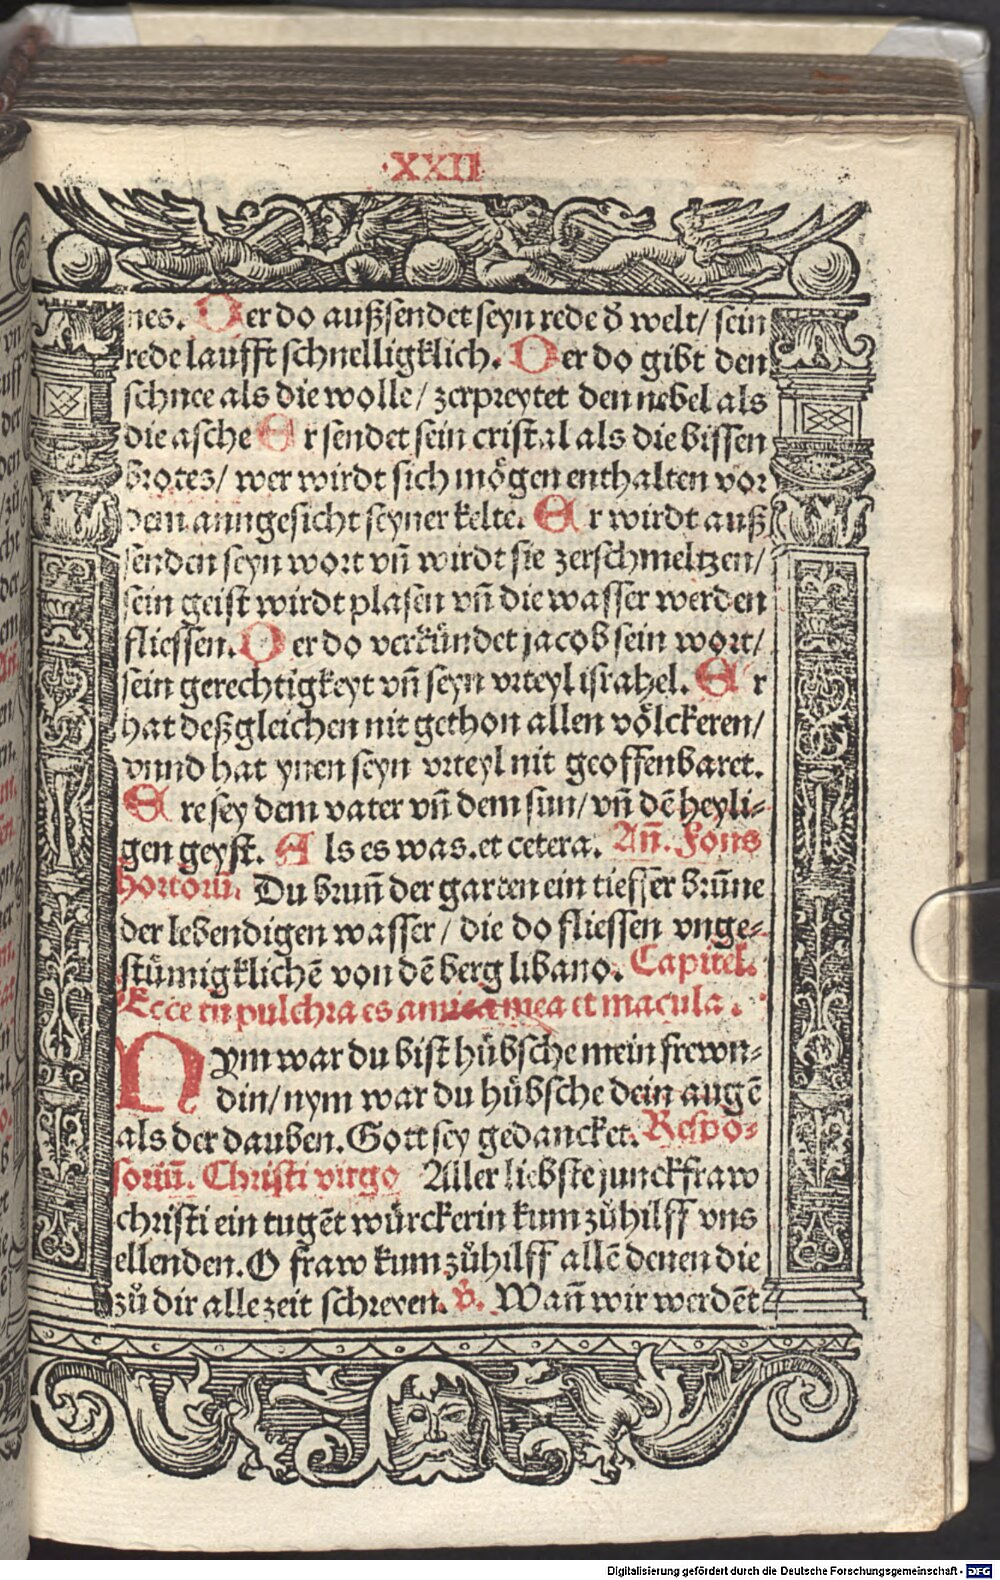 ·XXII
nes. Der do außsendet seyn rede d̕ welt/ sein
rede laufft schnelligklich. Der do gibt den
schnee als die wolle/ zerpreytet den nebel als
die asche Er sendet sein cristal als die bissen
brotes/ wer wirdt sich mögen enthalten vor
dem anngesicht seyner kelte. Er wirdt auß
senden seyn wort vn̄ wirdt sie zerschmeltzen/
sein geist wirdt plasen vn̄ die wasser werden
fliessen. Der do verkündet jacob sein wort/
sein gerechtigkeyt vn̄ seyn vrteyl israhel. Er
hat deßgleichen nit gethon allen völckeren/
vnnd hat ynen seyn vrteyl nit geoffenbaret.
Ere sey dem vater vn̄ dem sun/ vn̄ dē heyli-
gen geyst. Als es was. et cetera. An̄. Fons
hortorū. Du brun̄ der garten ein tieffer brūne
der lebendigen wasser/ die do fliessen vnge-
stümigklichē von dē berg libano. Capitel.
Ecce tu pulchra es amica mea et macula.
Nym war du bist hübsche mein frewn-
din/ nym war du hübsche dein augē
als der dauben. Gott sey gedancket. Respo-
soriū. Christi virgo Aller liebste junckfraw
christi ein tugēt würckerin kum zů hilff vns
ellenden. O fraw kum zů hilff allē denen die
zů dir allezeit schreyen. V. Wan̄ wir werdēt
Digitalisierung gefördert durch die Deutsche Forschungsgemeinschaft - DFG